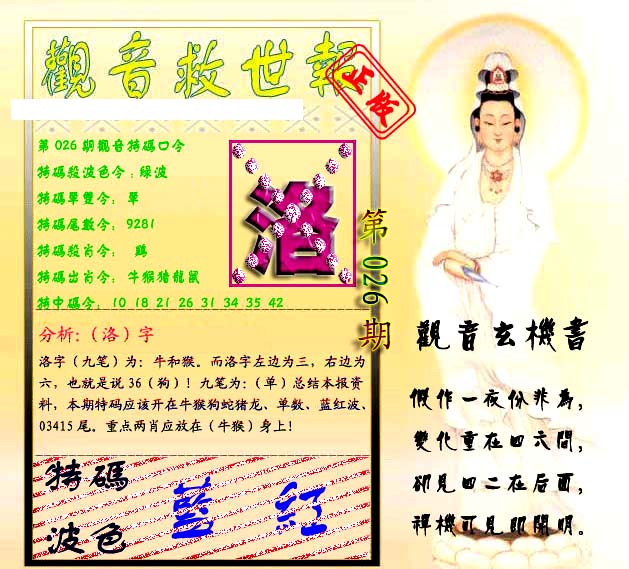 觀音救世報
正版
第026期觀音特碼口令
特碼殺波色令:綠波
特碼單雙令: 單
特碼尾數令: 9281
特碼殺肖令: 鷄
特碼出肖令: 牛猴猪龍鼠
特中碼令: 10 18 21 26 31 34 35 42
洛
第026期
分析:(洛)字
洛字(九笔)为: 牛和猴。而洛字左边为三, 右边为
六, 也就是说36(狗)! 九笔为:(单)总结本报资
料, 本期特码应该开在牛猴狗蛇猪龙、单数、蓝红波、
03415尾。重点两肖应放在(牛猴)身上!
特碼
波色
藍 紅
觀音玄機書
假作一夜份非為,
變化重在四六間,
卻見四二在后面,
禅機可見即開明。